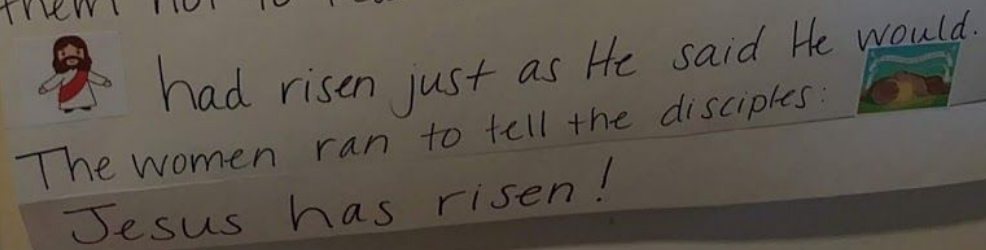 them not to
had risen just as He said He would.
The women ran to tell the disciples:
Jesus has risen!